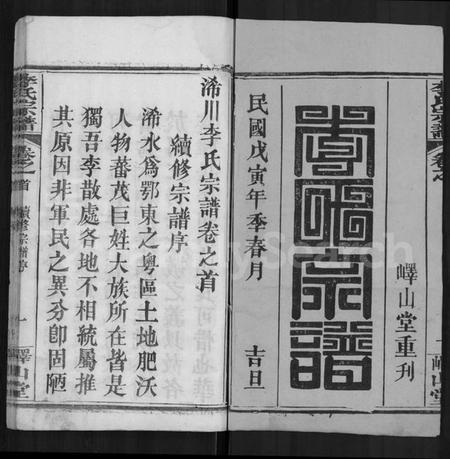 李氏宗譜
嶧山堂重刊
李氏宗譜
民國戊寅年季春月 吉旦
浠川李氏宗譜卷之首
續修宗譜序
浠水為鄂東之粵區土地肥沃
人物蕃茂巨姓大族所在皆是
獨吾李散處各地不相統屬推
其原因非軍民之異分卽固陋
李氏宗譜 卷之首 續修宗譜序 一 嶧山堂